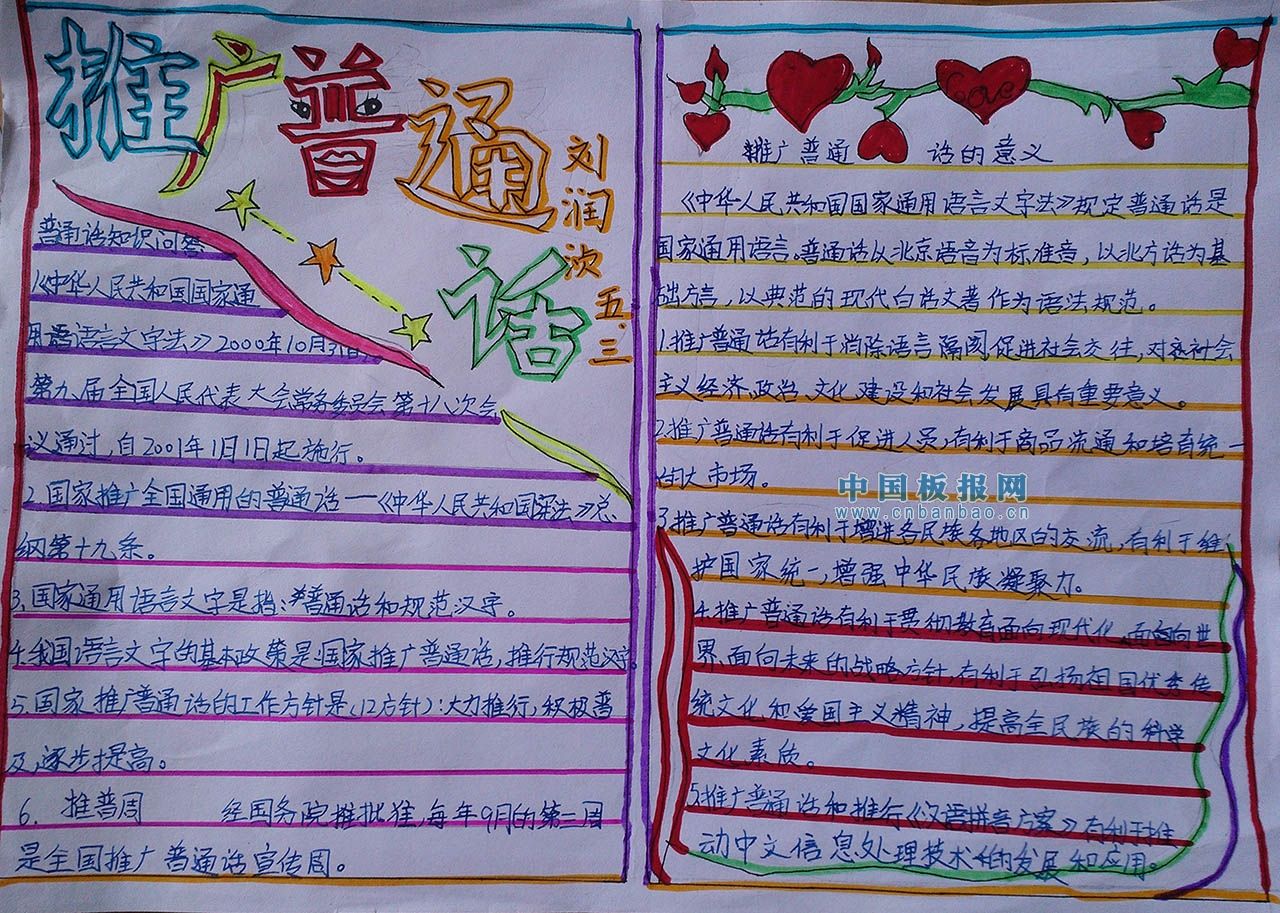 推广普通话
刘润次
五.三
普通话知识问答
《中华人民共和国国家通
用语语言文字法》2000年10月31日
第九届全国人民代表大会常务委员会第十八次会
议通过,自2001年1月1日起施行。
2.国家推广全国通用的普通话——《中华人民共和国宪法》总
纲第十九条。
3.国家通用语言文字是指:普通话和规范汉字。
4.我国语言文字的基本政策是:国家推广普通话,推行规范汉字
5.国家推广普通话的工作方针是(12方针):大力推行,积极普
及,逐步提高。
6. 推普周 经国务院批准,每年9月的第三周
是全国推广普通话宣传周。
Love
推广普通 话的意义
《中华人民共和国国家通用语言文字法》规定普通话是
国家通用语言。普通话以北京语音为标准音,以北方话为基
础方言,以典范的现代白话文著作为语法规范。
1.推广普通话有利于消除语言隔阂促进社会交往,对社会
主义经济、政治、文化建设和社会发展具有重要意义。
2.推广普通话有利于促进人员,有利于商品流通和培育统一
的大市场。
3.推广普通话有利于增进各民族各地区的交流,有利于维
护国家统一,增强中华民族凝聚力。
4.推广普通话有利于贯彻教育面向现代化,面向世
界、面向未来的战略方针,有利于弘扬祖国优秀传
统文化和爱国主义精神,提高全民族的科学
文化素质。
5.推广普通话和推行《汉语拼音方案》有利于推
动中文信息处理技术的发展和应用。
中国板报网
www.cnbanbao.cn